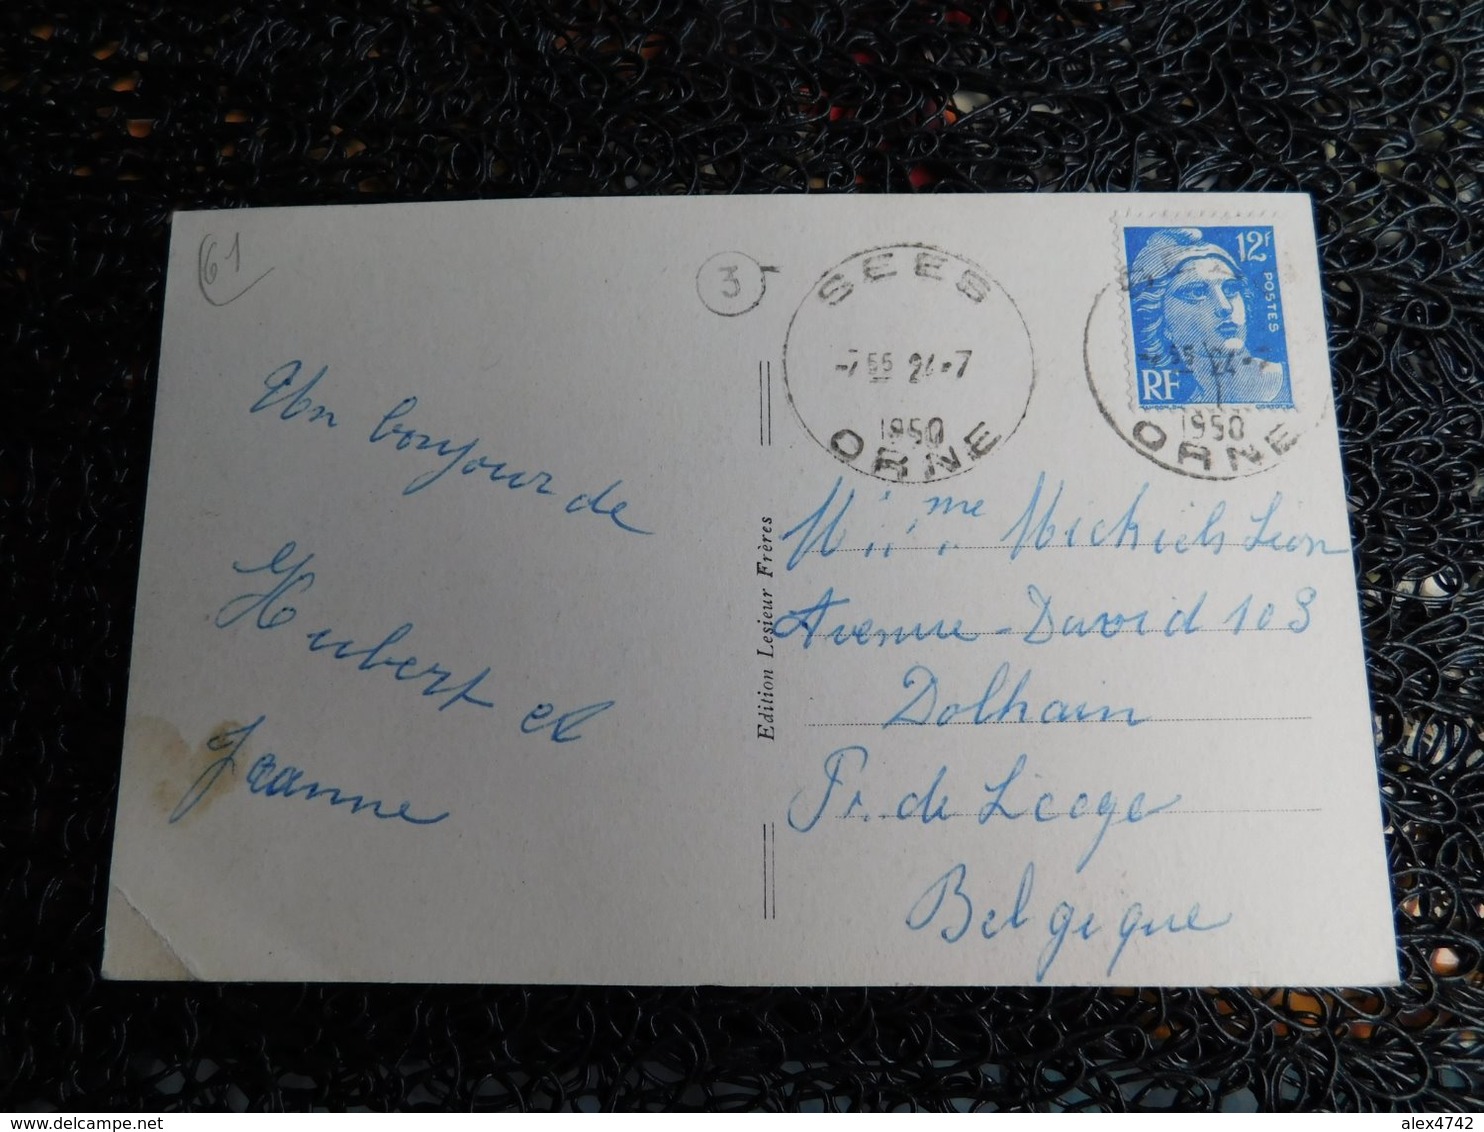 61
3
SEES
-7 55 24-7
1950
ORNE
12F
POSTES
RF
-7 55 24-7
1950
ORNE
Un bonjour de
Hubert et
Jeanne
Edition Lesieur Frères
me Michiels Leon
Avenue-David 103
Dolhain
Pr. de Leege
Belgique
delcampe.net
alex4742